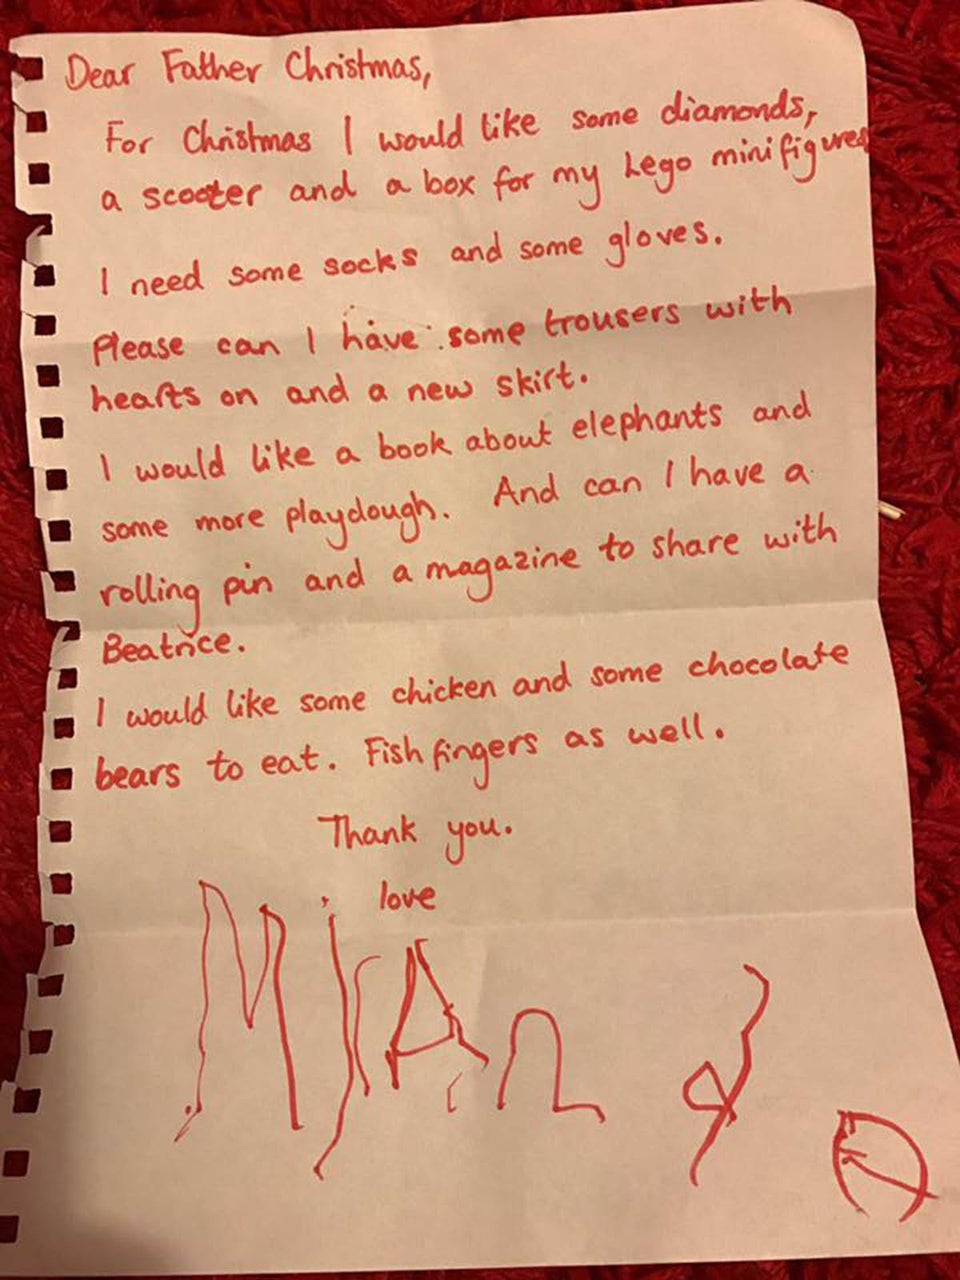 Dear Father Christmas,
For Christmas I would like some diamonds,
a scooter and a box for my Lego minifigures
I need some socks and some gloves.
Please can I have some trousers with
hearts on and a new skirt.
I would like a book about elephants and
some more playdough. And can I have a
rolling pin and a magazine to share with
Beatrice.
I would like some chicken and some chocolate
bears to eat. Fish fingers as well.
Thank you.
love